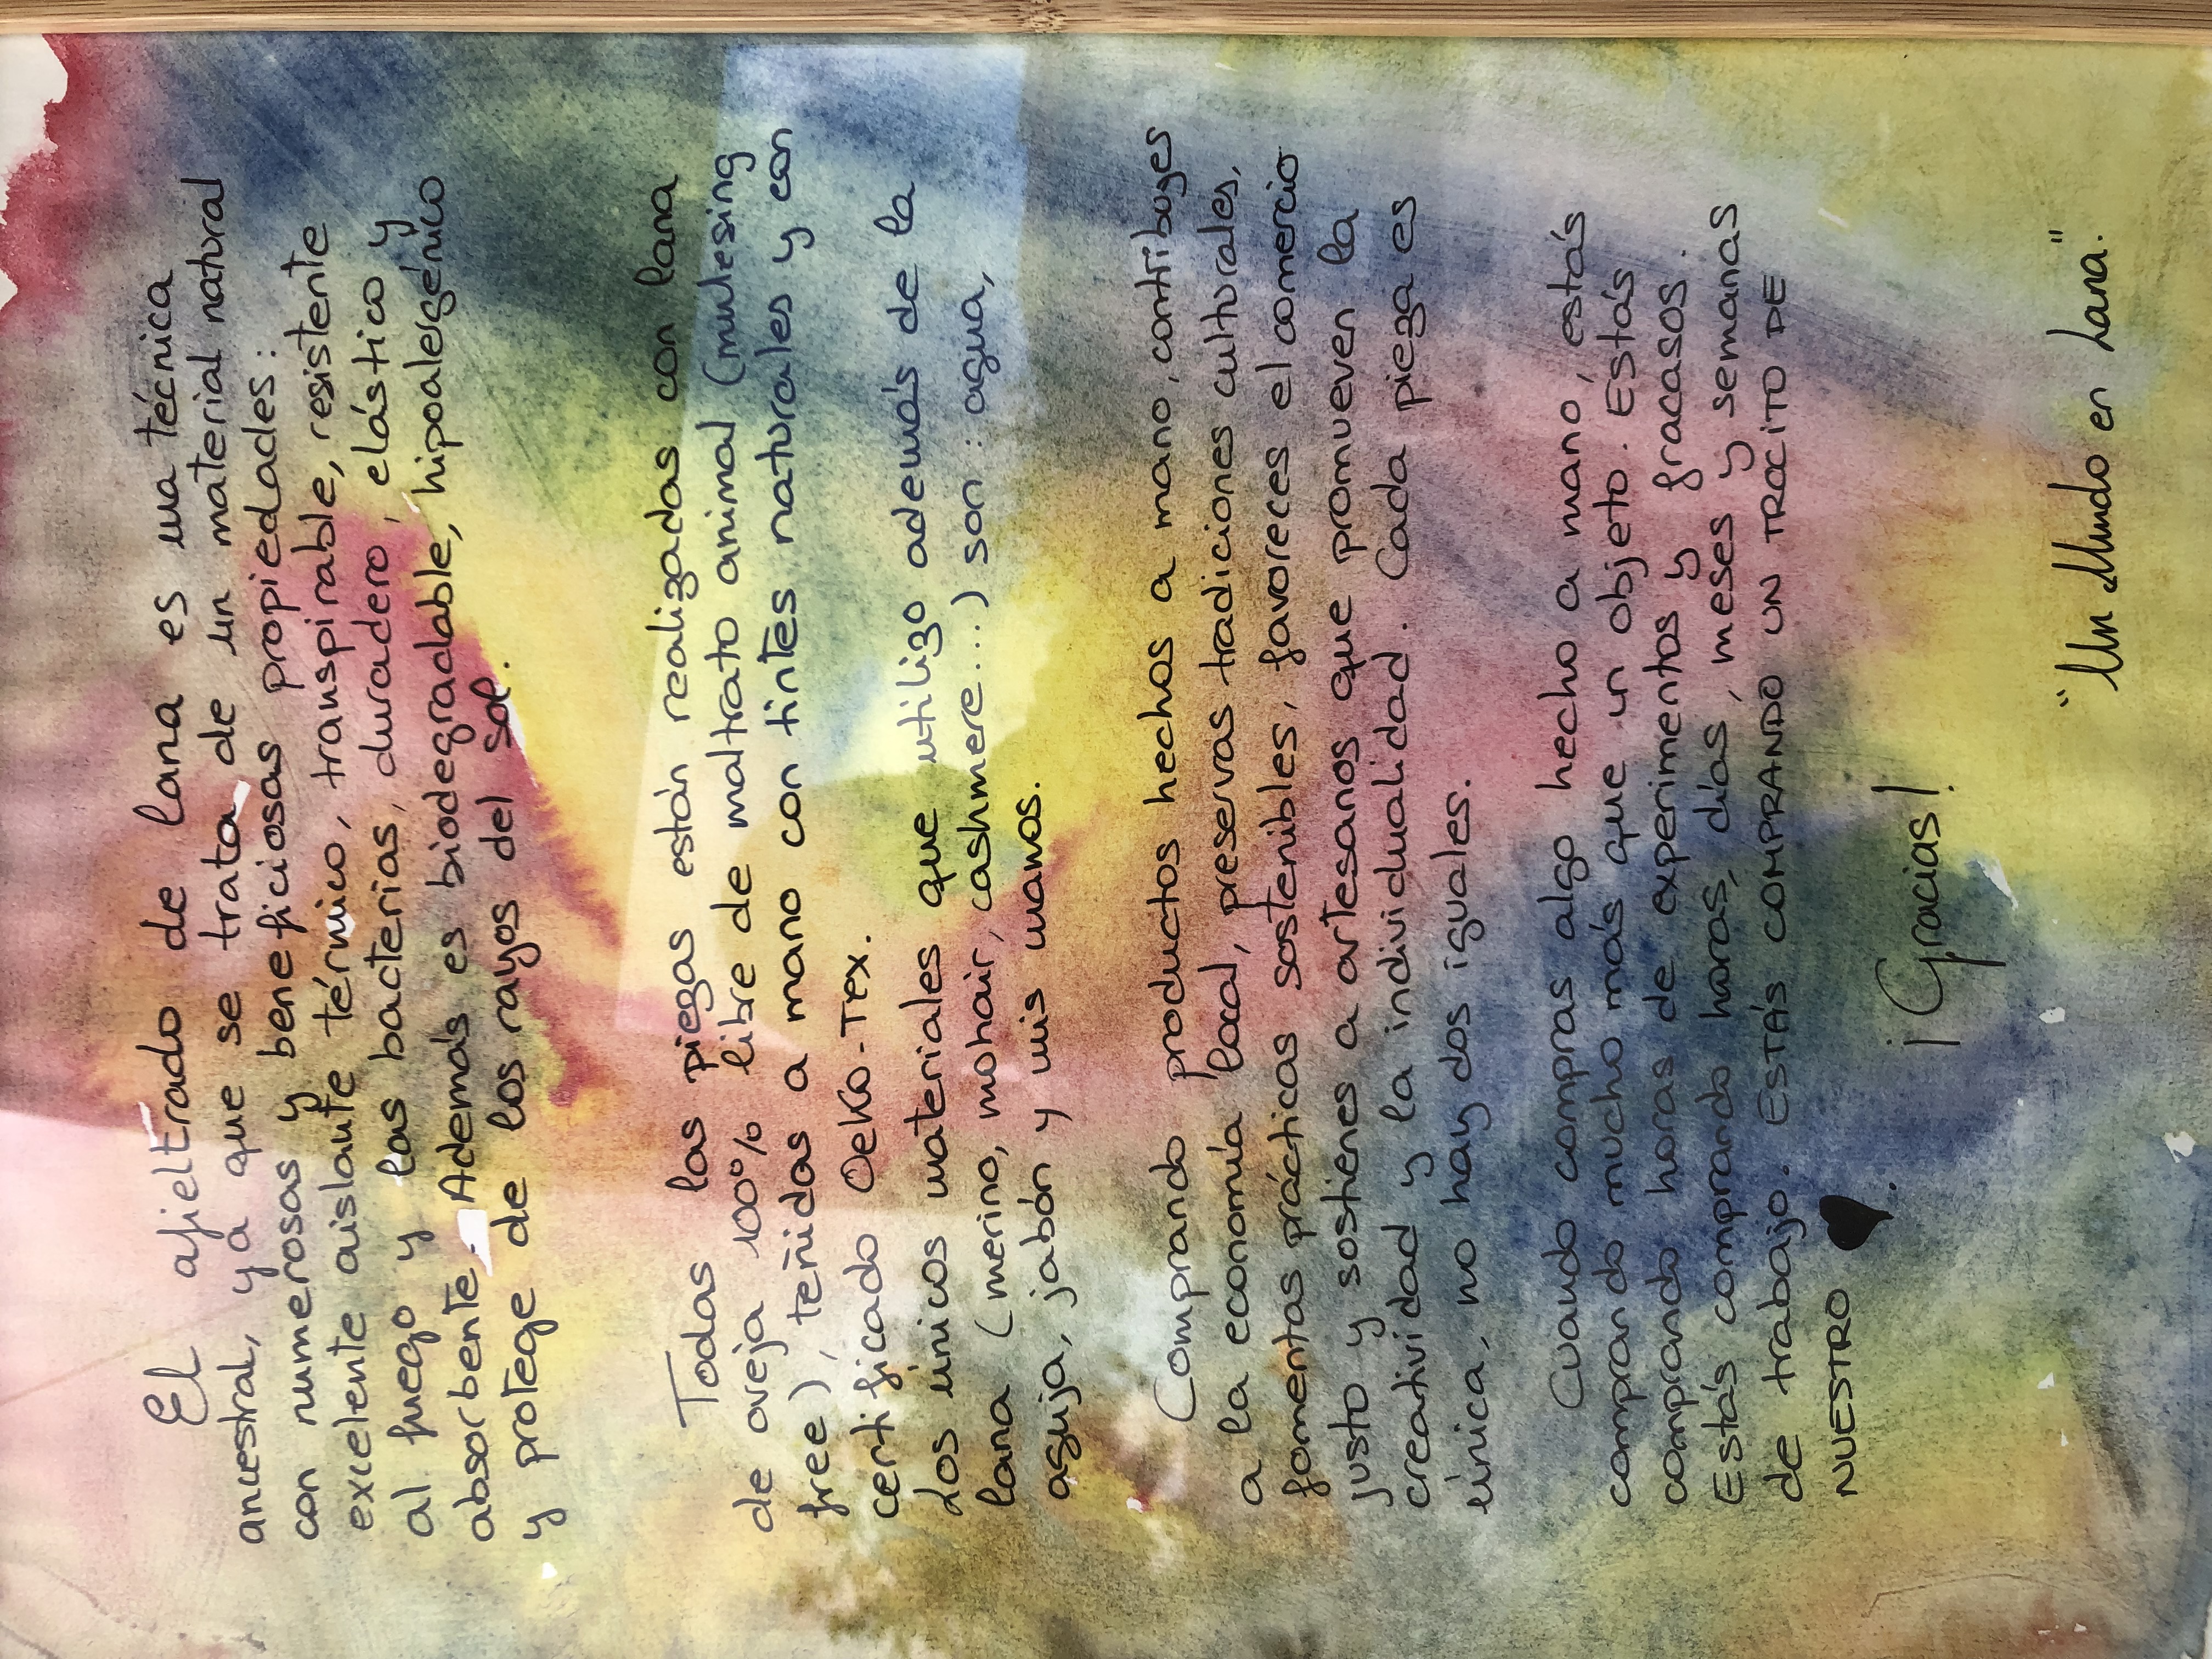 El afieltrado de lana es una técnica
ancestral, ya que se trata de un material natural
con numerosas y beneficiosas propiedades:
excelente aislante térmico, transpirable, resistente
al fuego y las bacterias, duradero, elástico y
absorbente. Además es biodegradable, hipoalergénico
y protege de los rayos del sol.
Todas las piezas están realizadas con lana
de oveja 100% libre de maltrato animal (mulesing
free), teñidas a mano con tintes naturales y con
certificado Oeko-Tex.
Los únicos materiales que utilizo además de la
lana (merino, mohair, cashmere...) son: agua,
aguja, jabón y mis manos.
Comprando productos hechos a mano, contribuyes
a la economía local, preservas tradiciones culturales,
fomentas prácticas sostenibles, favoreces el comercio
justo y sostienes a artesanos que promueven la
creatividad y la individualidad. Cada pieza es
única, no hay dos iguales.
Cuando compras algo hecho a mano, estás
comprando mucho más que un objeto. Estás
comprando horas de experimentos y fracasos.
Estás comprando horas, días, meses y semanas
de trabajo. ESTÁS COMPRANDO UN TROCITO DE
NUESTRO ♥.
¡Gracias!
"Un Mundo en Lana."